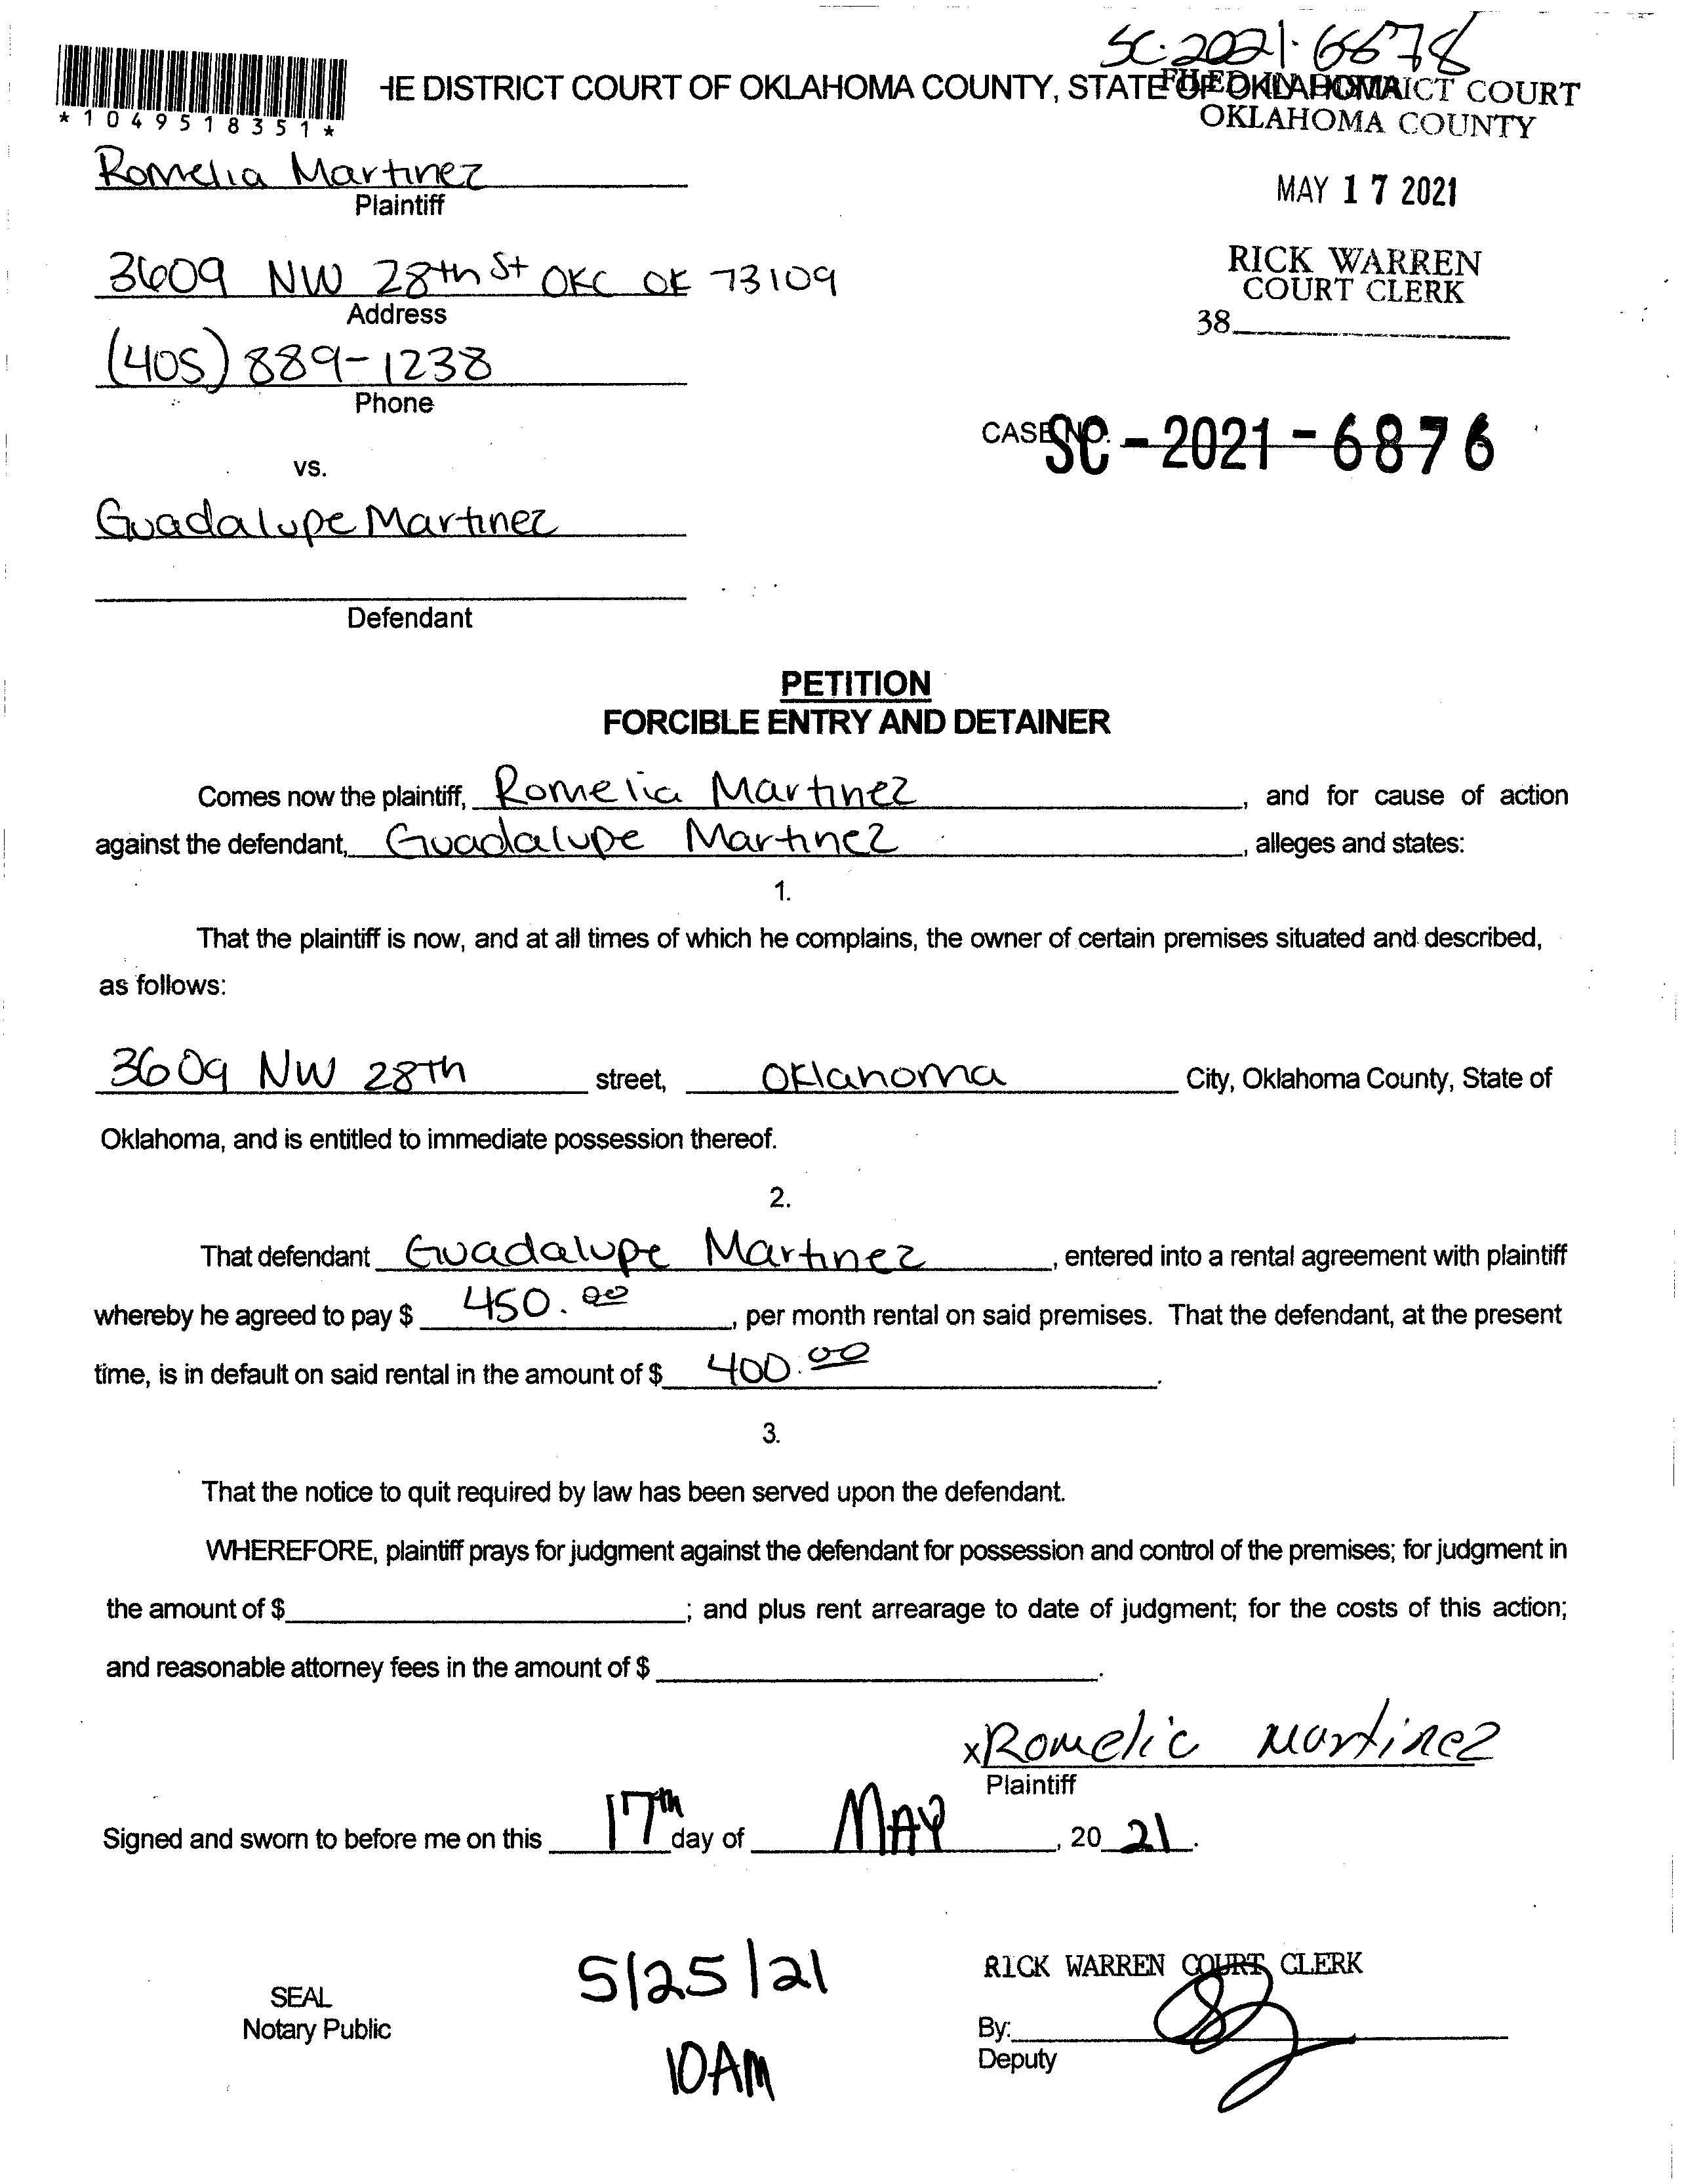 SC-2021-6678
*1049518351*
HE DISTRICT COURT OF OKLAHOMA COUNTY, STATE OF OKLAHOMA
FILED IN DISTRICT COURT
OKLAHOMA COUNTY
Romelia Martinez
Plaintiff
MAY 17 2021
3609 NW 28th St OKC OK 73109
Address
RICK WARREN
COURT CLERK
38
(405) 889-1238
Phone
CASE NO. SC-2021-6876
vs.
Guadalupe Martinez
Defendant
PETITION
FORCIBLE ENTRY AND DETAINER
Comes now the plaintiff, Romelia Martinez, and for cause of action
against the defendant, Guadalupe Martinez, alleges and states:
1.
That the plaintiff is now, and at all times of which he complains, the owner of certain premises situated and described,
as follows:
3609 NW 28th street, Oklahoma City, Oklahoma County, State of
Oklahoma, and is entitled to immediate possession thereof.
2.
That defendant Guadalupe Martinez, entered into a rental agreement with plaintiff
whereby he agreed to pay $ 450.00, per month rental on said premises. That the defendant, at the present
time, is in default on said rental in the amount of $ 400.00.
3.
That the notice to quit required by law has been served upon the defendant.
WHEREFORE, plaintiff prays for judgment against the defendant for possession and control of the premises; for judgment in
the amount of $ ; and plus rent arrearage to date of judgment; for the costs of this action;
and reasonable attorney fees in the amount of $ .
x Romelia Martinez
Plaintiff
Signed and sworn to before me on this 17th day of MAY, 20 21.
SEAL
Notary Public
5/25/21
10AM
RICK WARREN COURT CLERK
By:
Deputy